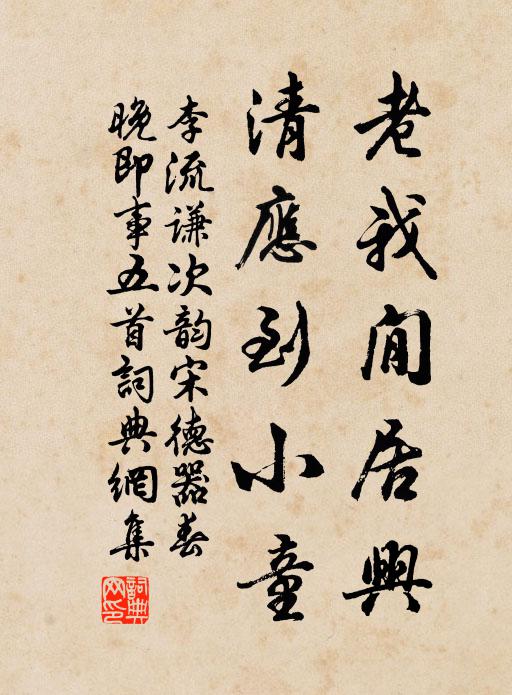 老我閒居興
清應到小童
李流謙次韵宋德器春
晚即事五首詞典網集
詞典網印